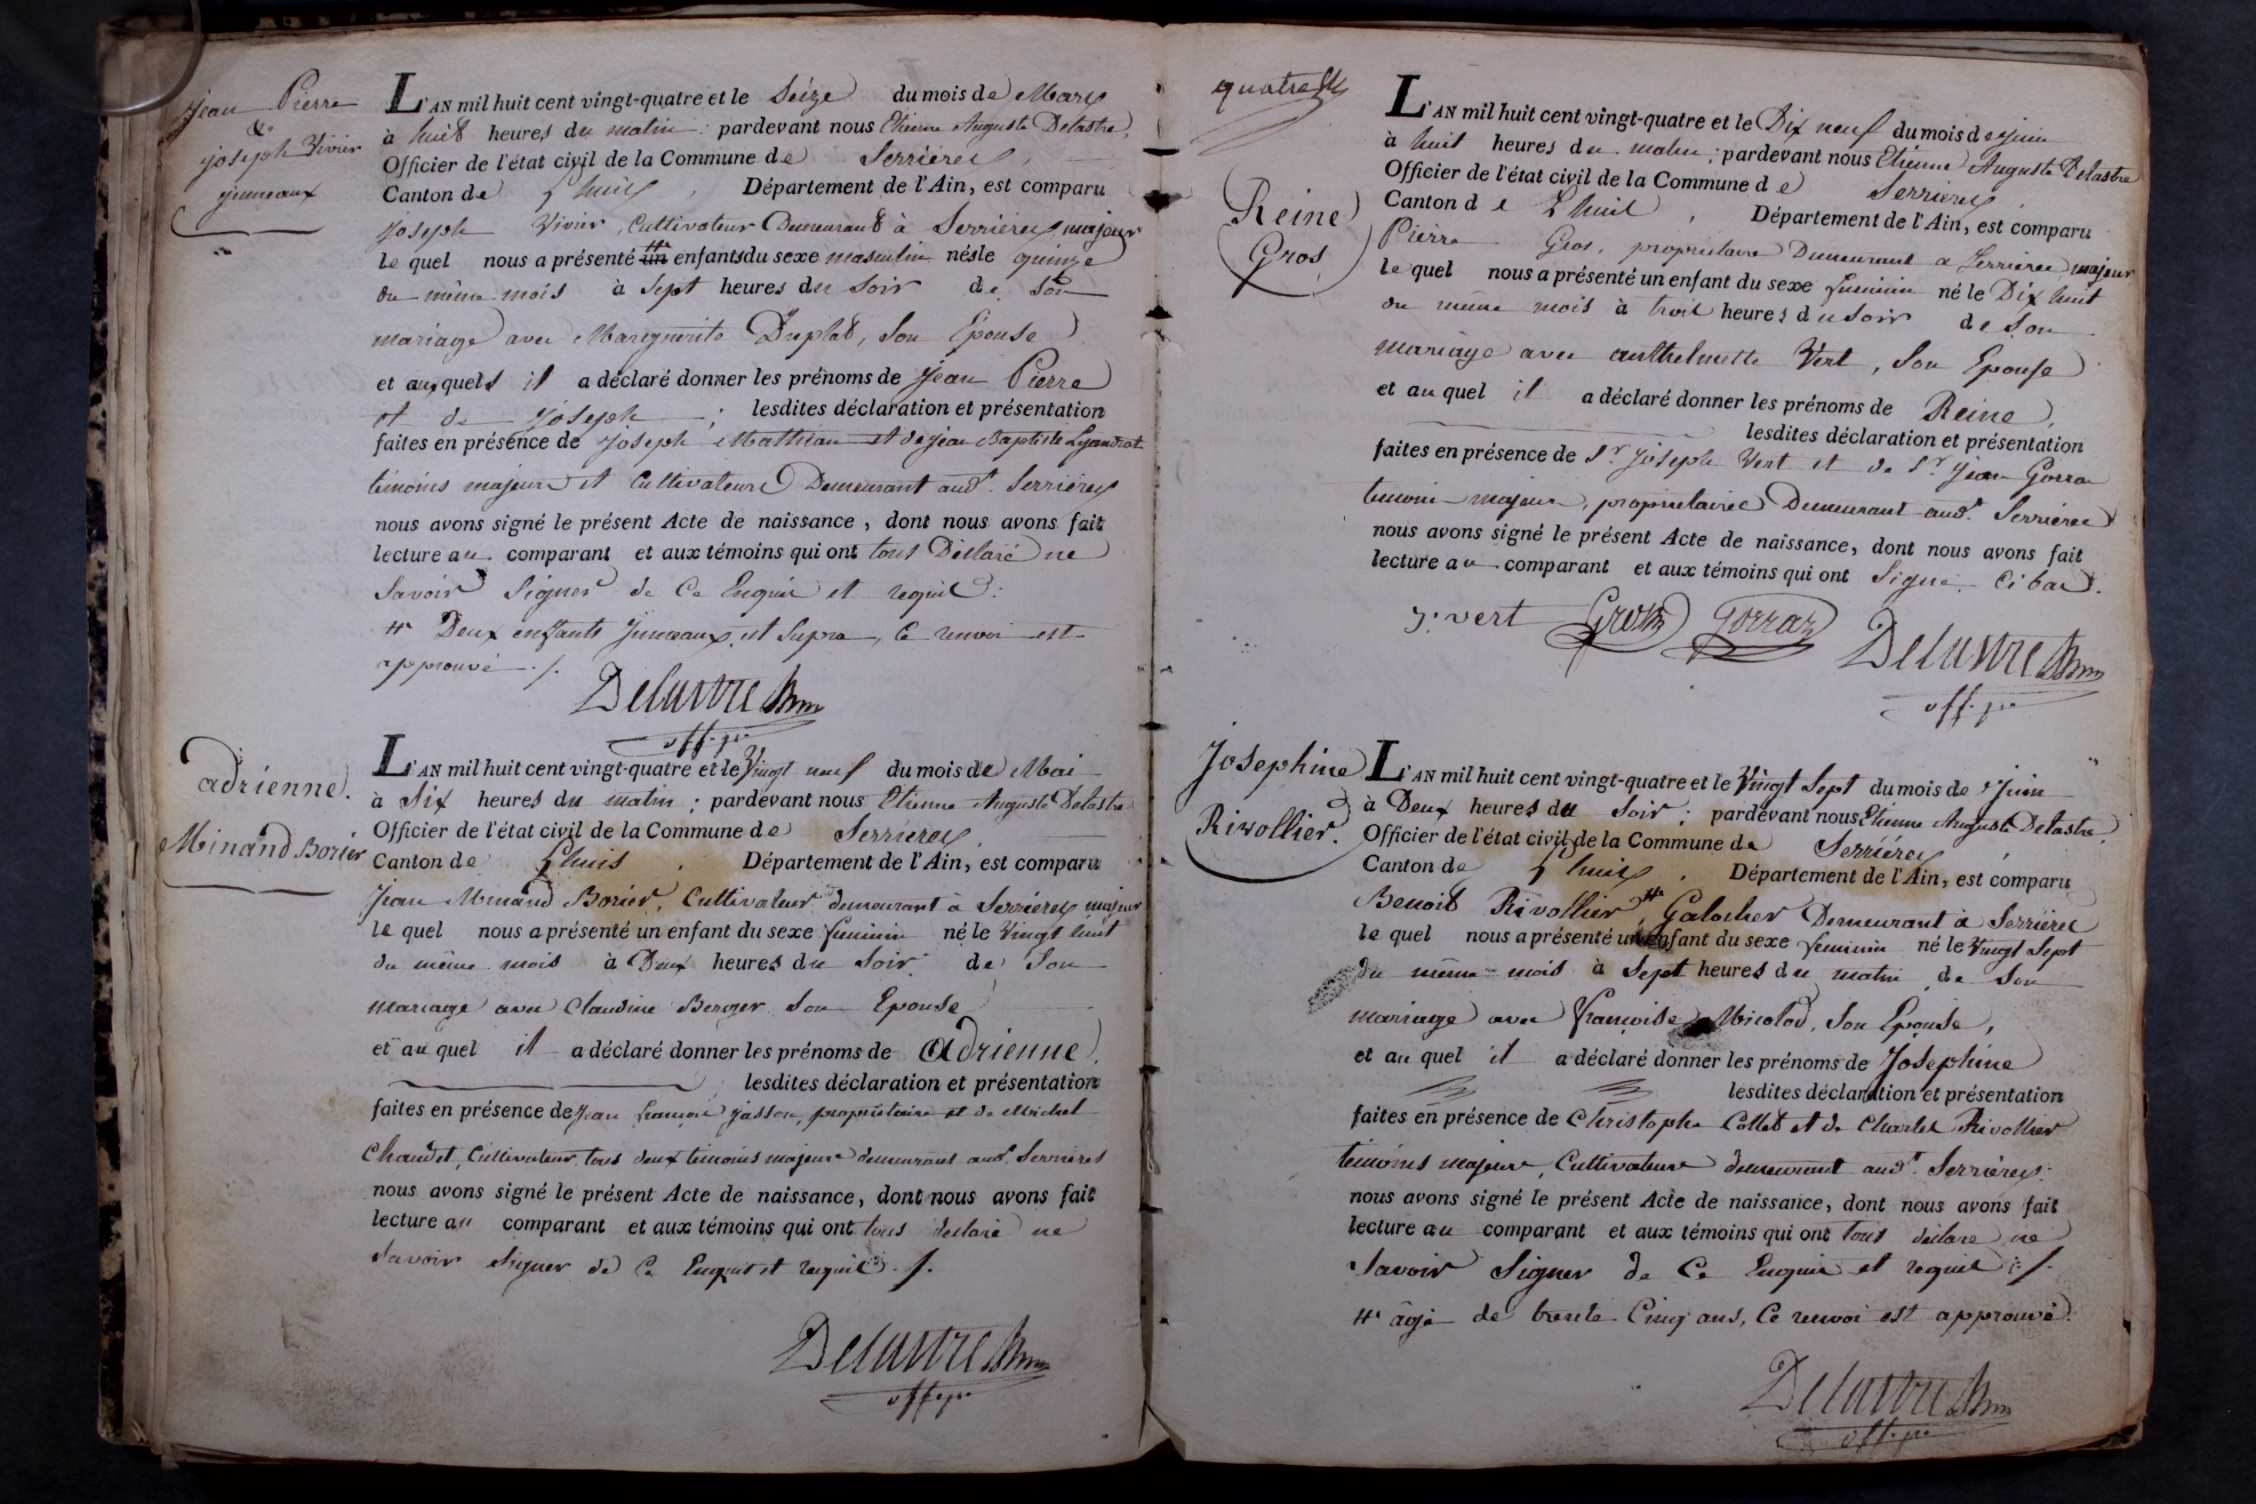 Jean Pierre
&
joseph Vivier
jumeaux
L'AN mil huit cent vingt-quatre et le Seize du mois de Mars
à huit heures du matin : pardevant nous Etienne Auguste Delastre,
Officier de l'état civil de la Commune de Serrieres,
Canton de Lhuis, Département de l'Ain, est comparu
Joseph Vivier, Cultivateur Demeurant à Serrières, majeur
le quel nous a présenté un # enfants du sexe masculin nés le quinze
du même mois à Sept heures du Soir de Son
mariage avec Marguerite Duplat, Son Epouse
et auxquels il a déclaré donner les prénoms de Jean Pierre
et de Joseph ; lesdites déclaration et présentation
faites en présence de Joseph Mathieu et de jean Baptiste
témoins majeurs et Cultivateurs Demeurant aud.t Serrières
nous avons signé le présent Acte de naissance, dont nous avons fait
lecture au comparant et aux témoins qui ont tous Déclaré ne
Savoir Signer de Ce Enquis et requis :
# Deux enfants jumeaux, ut Supra, Ce renvoi est
approuvé ./.
Delastre
off. p.
adrienne.
Minand Borier
L'AN mil huit cent vingt-quatre et le Vingt neuf du mois de Mai
à Six heures du matin ; pardevant nous Etienne Auguste Delastre
Officier de l'état civil de la Commune de Serrieres,
Canton de Lhuis, Département de l'Ain, est comparu
Jean Minand Borier, Cultivateur demeurant à Serrières majeur
le quel nous a présenté un enfant du sexe feminin né le Vingt huit
du même mois à Deux heures du Soir de Son
mariage avec Claudine Berger Son Epouse
et au quel il a déclaré donner les prénoms de Adrienne.
lesdites déclaration et présentation
faites en présence de Jean françois jasson, propriétaire et de Michel
Chaudet, Cultivateur, tous deux témoins majeurs demeurant aud.t Serrières
nous avons signé le présent Acte de naissance, dont nous avons fait
lecture au comparant et aux témoins qui ont tous déclaré ne
Savoir Signer de Ce Enquis et requis ./.
Delastre
off. p.
quatre
Reine
Gros
L'AN mil huit cent vingt-quatre et le Dix neuf du mois de juin
à huit heures du matin ; pardevant nous Etienne Auguste Delastre
Officier de l'état civil de la Commune de Serrieres
Canton de Lhuis, Département de l'Ain, est comparu
Pierre Gros, propriétaire Demeurant à Serrières majeur
le quel nous a présenté un enfant du sexe feminin né le Dix huit
du même mois à trois heures du Soir de Son
mariage avec anthelmette Vert, Son Epouse
et au quel il a déclaré donner les prénoms de Reine,
lesdites déclaration et présentation
faites en présence de S.r Joseph Vert et de S.r Jean Gorra
temoins majeurs, propriétaires Demeurant aud.t Serrières
nous avons signé le présent Acte de naissance, dont nous avons fait
lecture au comparant et aux témoins qui ont Signé Ci bas.
J. vert Gros Gorraz Delastre
off. p.
Josephine
Rivollier.
L'AN mil huit cent vingt-quatre et le Vingt Sept du mois de Juin
à Deux heures du Soir ; pardevant nous Etienne Auguste Delastre,
Officier de l'état civil de la Commune de Serrières,
Canton de Lhuis, Département de l'Ain, est comparu
Benoit Rivollier #, Galocher Demeurant à Serrières
le quel nous a présenté un enfant du sexe feminin né le Vingt Sept
du même mois à Sept heures du matin de Son
mariage avec françoise Micolod, Son Epouse,
et au quel il a déclaré donner les prénoms de Josephine
lesdites déclaration et présentation
faites en présence de Christophe Collet et de Charles Rivollier
témoins majeurs, Cultivateurs demeurant aud.t Serrières.
nous avons signé le présent Acte de naissance, dont nous avons fait
lecture au comparant et aux témoins qui ont tous déclaré ne
Savoir Signer de Ce Enquis et requis ./.
# âgé de trente Cinq ans, Ce renvoi est approuvé.
Delastre
off. p.